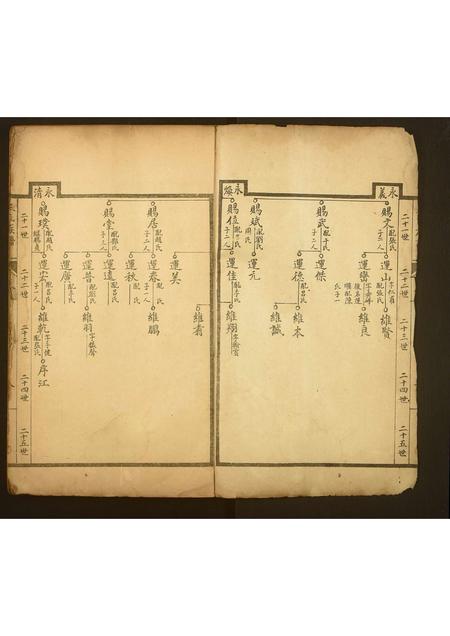 永義
二十一世
二十二世
二十三世
二十四世
二十五世
賜文
配張氏
子二人
賜武
配于氏
子二人
賜斌
配劉氏
周氏
永燦
賜位
子二人
運山
配張氏
運傑
運德
配呂氏
運元
運佳
配李氏
子一人
維賢
維良
維本
維誠
維翔
賜居
配趙氏
子二人
賜堂
子三人
賜璞
配趙氏
永清
二十一世
二十二世
二十三世
二十四世
二十五世
運美
運泰
配氏
子一人
運秋
配氏
運遠
配呂氏
運普
配劉氏
運廣
配李氏
運宏
配呂氏
子一人
維翥
維鵬
維羽
維乾
配張氏
序江